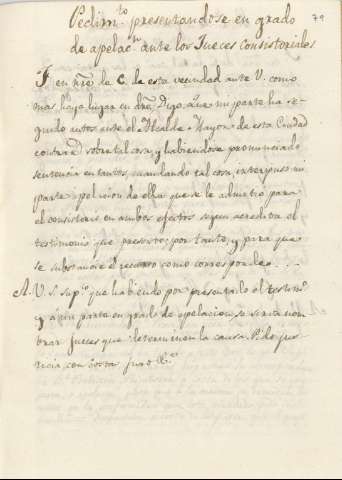 79
Pedim.to presentandose en grado
de apelac.n ante los Jueces Consistoriales
F. en nre. de C. de esta vecindad ante V. como
mas haya lugar en dro. Digo: que mi parte ha se-
guido autos ante el Alcalde Mayor de esta Ciudad
contra D sobre tal cosa, y habiendose pronunciado
sentencia en tantos, mandando tal cosa, interpuso mi
parte apelacion de ella que se le admitio para
el consistorio en ambos efectos segun acredita el
testimonio que presento; por tanto, y para que
se substancie el recurso como corresponde....
A. V. S. sup.co que habiendo por presentado el testim.o
y a mi parte en grado de apelacion se sirva nom
brar jueces que determinen la causa. Pido jus-
ticia con costas juro &.a